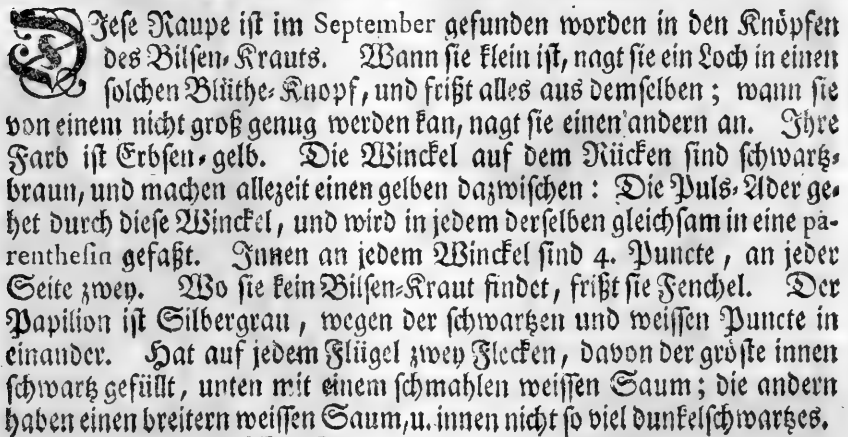 DJese Raupe ist im September gefunden worden in den Knöpfen
des Bilsen-Krauts. Wann sie klein ist, nagt sie ein Loch in einen
solchen Blüthe-Knopf, und frißt alles aus demselben; wann sie
von einem nicht groß genug werden kan, nagt sie einen andern an. Ihre
Farb ist Erbsen-gelb. Die Winckel auf dem Rücken sind schwartz-
braun, und machen allezeit einen gelben dazwischen: Die Puls-Ader ge-
het durch diese Winckel, und wird in jedem derselben gleichsam in eine pa-
renthesin gefaßt. Innen an jedem Winckel sind 4. Puncte, an jeder
Seite zwey. Wo sie kein Bilsen-Kraut findet, frißt sie Fenchel. Der
Papilion ist Silbergrau, wegen der schwartzen und weissen Puncte in
einander. Hat auf jedem Flügel zwey Flecken, davon der gröste innen
schwartz gefüllt, unten mit einem schmahlen weissen Saum; die andern
haben einen breitern weissen Saum, u. innen nicht so viel dunkelschwartzes.